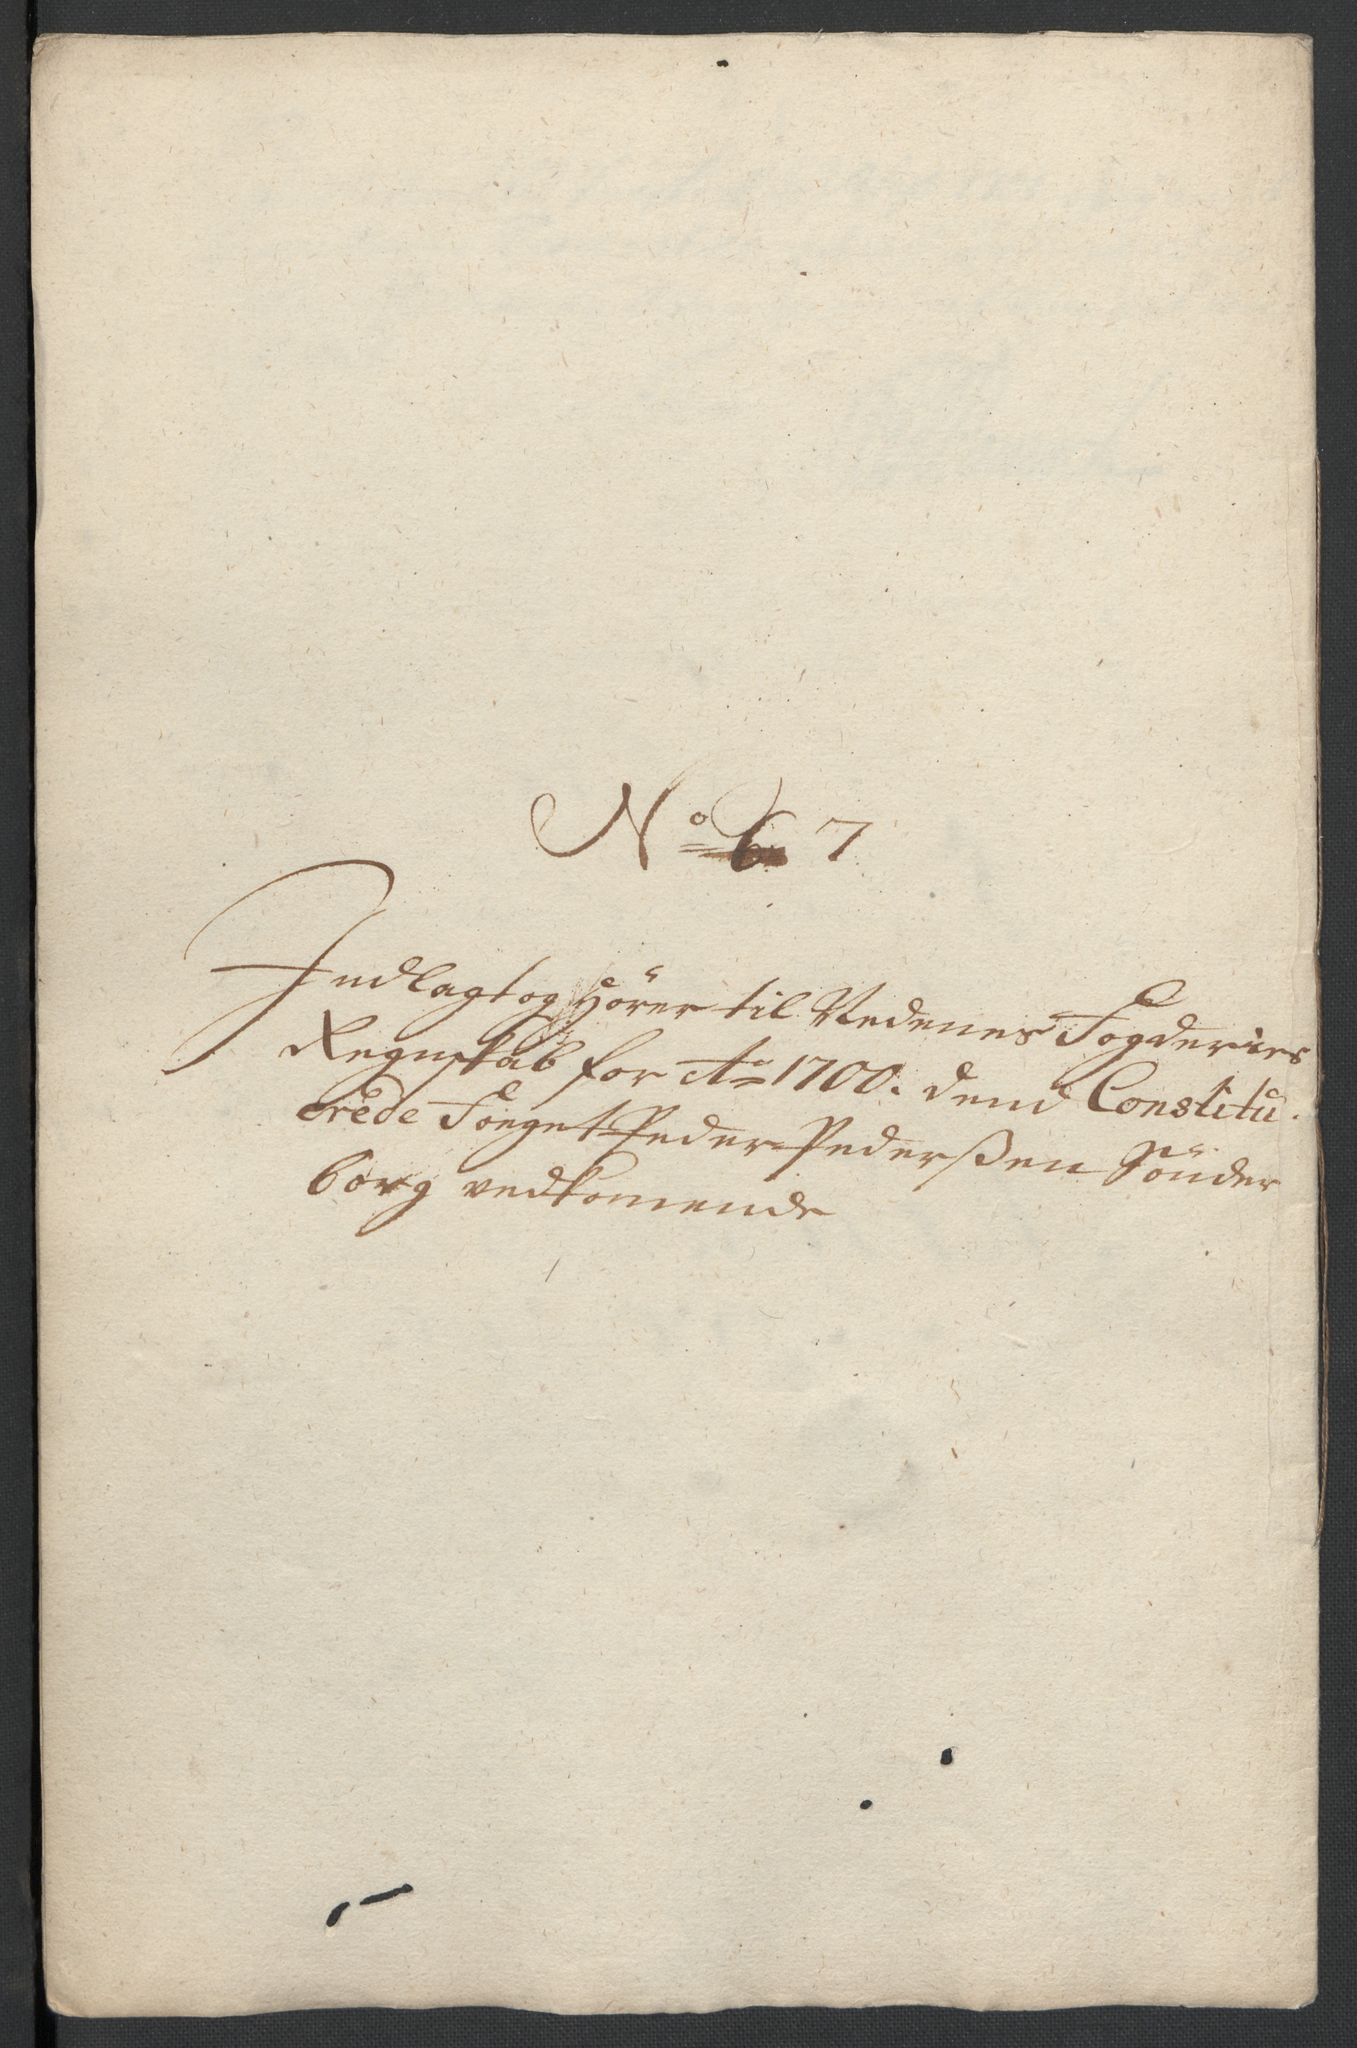 No 6 7
Indlagt og Hörer til Nedenes Fogderies
Regnskab for Ao 1700. dend Constitu.
erede Foeget Peder Pederßen Sönder
borg vedkomende